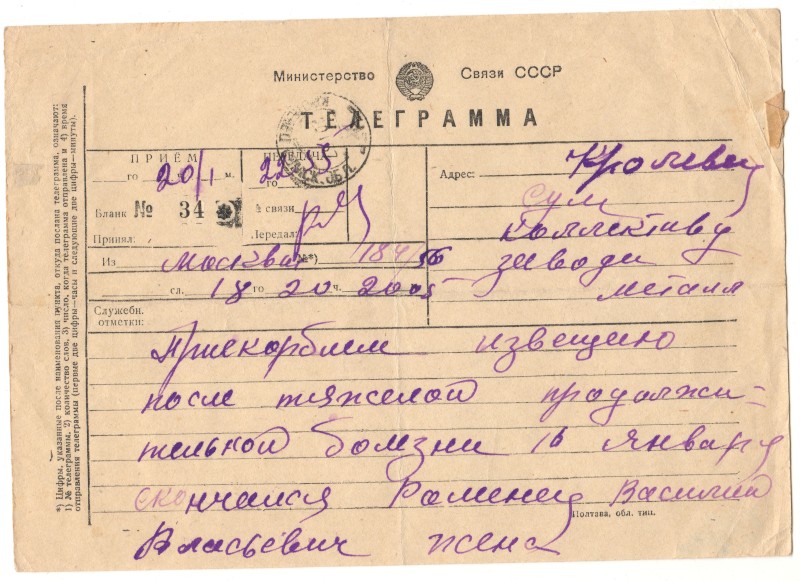 Министерство Связи СССР
ТЕЛЕГРАММА
ПРИЁМ
го 20/1 м.
Бланк № 34
Принял:
ПЕРЕДАЧА
22 55
го
№ связи
Передал:
Адрес: Кролевец
сум
Коллективу
заводи
металл
Из Москва №*) 184/56
сл. 18 го 20 ч. 2005
Служебн.
отметки:
Прискорблим извещию
после тяжелой продолжи-
тильной болезни 16 январу
скончался Раменец Василий
Власьевич жена
Полтава, обл. тип.
*) Цифры, указанные после наименования пункта, откуда послана телеграмма, означают:
1) № телеграммы, 2) количество слов, 3) число, когда телеграмма отправлена и 4) время
отправления телеграммы (первые две цифры—часы и следующие две цифры—минуты).